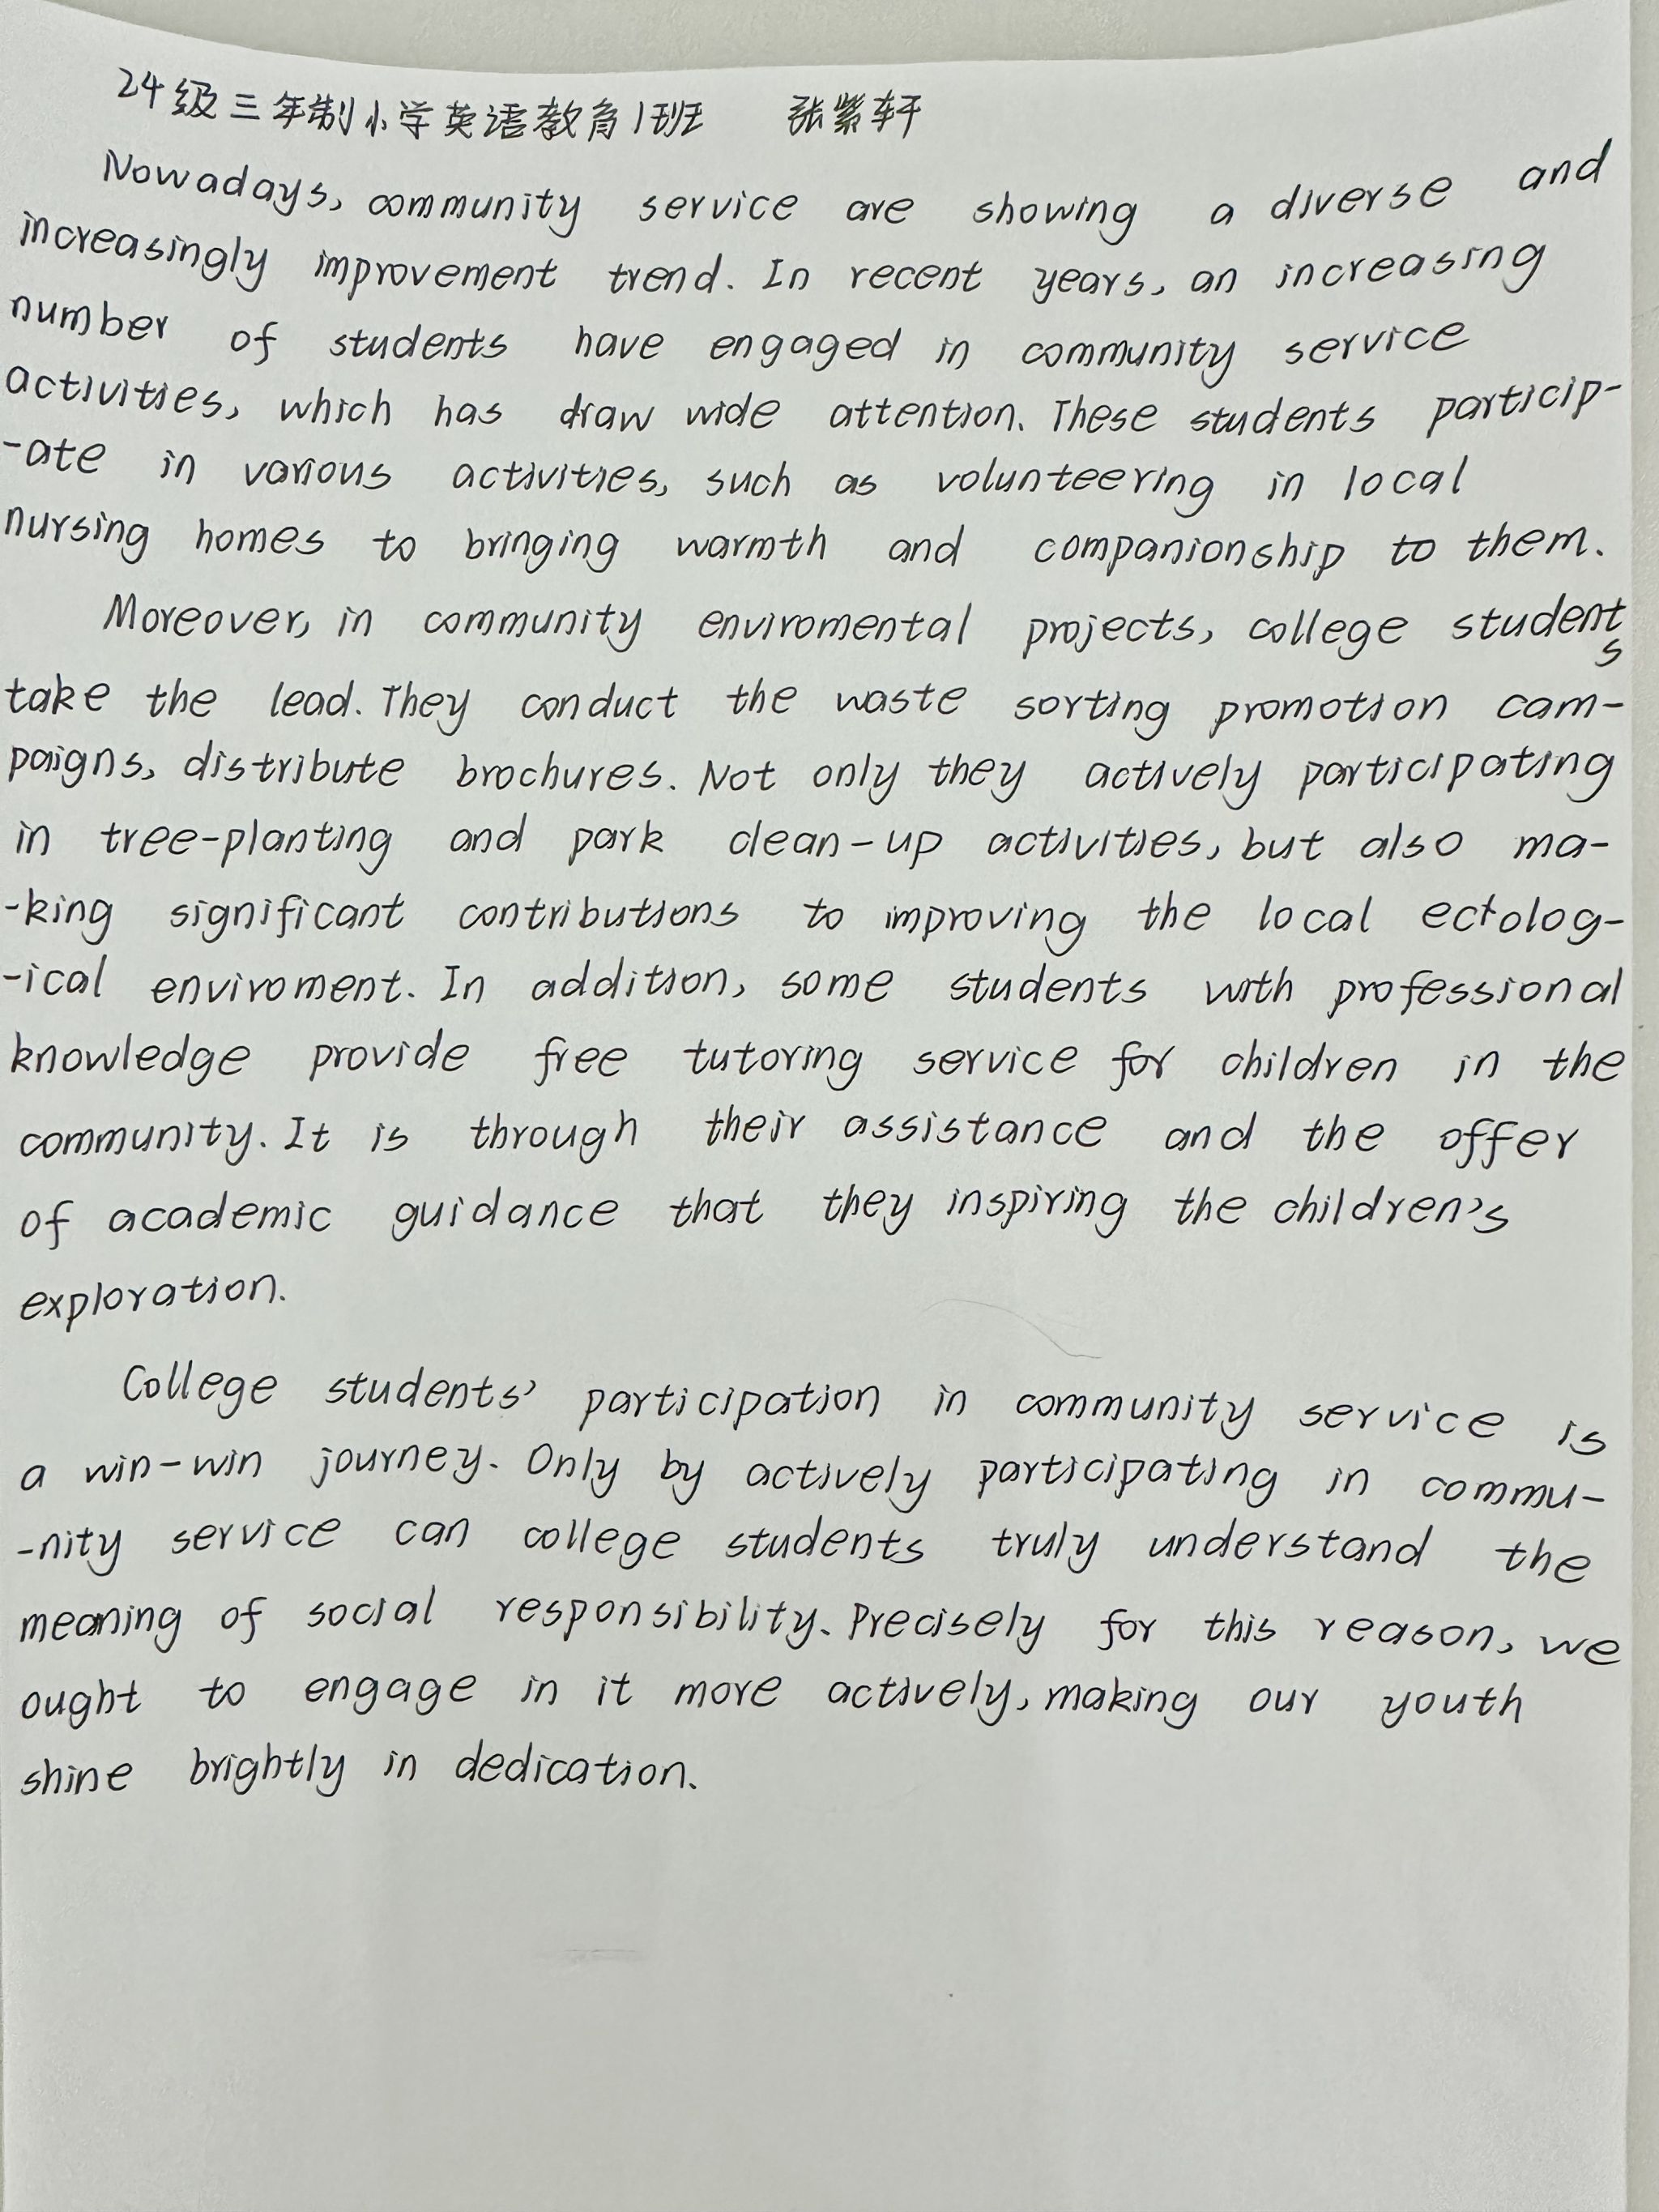 24级三年制小学英语教育1班 张紫轩
Nowadays, community service are showing a diverse and
increasingly improvement trend. In recent years, an increasing
number of students have engaged in community service
activities, which has draw wide attention. These students particip-
-ate in various activities, such as volunteering in local
nursing homes to bringing warmth and companionship to them.
Moreover, in community enviromental projects, college students
take the lead. They conduct the waste sorting promotion cam-
paigns, distribute brochures. Not only they actively participating
in tree-planting and park clean-up activities, but also ma-
-king significant contributions to improving the local ectolog-
-ical enviroment. In addition, some students with professional
knowledge provide free tutoring service for children in the
community. It is through their assistance and the offer
of academic guidance that they inspiring the children's
exploration.
College students' participation in community service is
a win-win journey. Only by actively participating in commu-
-nity service can college students truly understand the
meaning of social responsibility. Precisely for this reason, we
ought to engage in it more actively, making our youth
shine brightly in dedication.